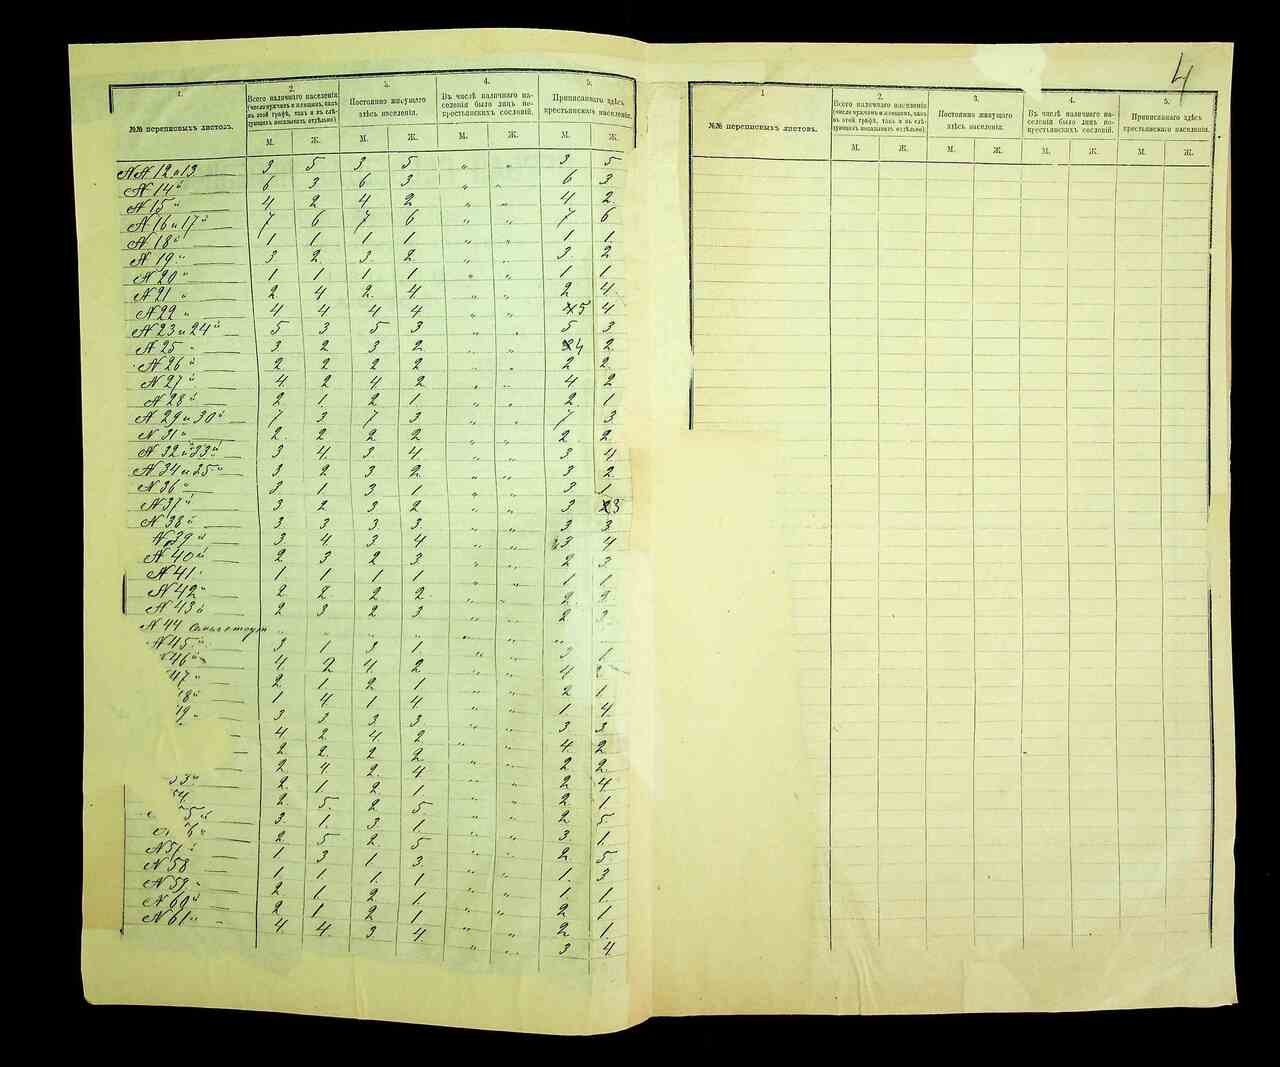 4
1.
№№ переписныхъ листовъ.
2.
Всего наличнаго населенія
(число мужчин и женщинъ, какъ
въ этой графѣ, такъ и въ слѣ-
дующихъ показывать отдѣльно)
М. Ж.
3.
Постоянно живущаго
здѣсь населенія.
М. Ж.
4.
Въ числѣ наличнаго на-
селенія было лицъ не-
крестьянскихъ сословій.
М. Ж.
5.
Приписаннаго здѣсь
крестьянскаго населенія.
М. Ж.
№№ 12 и 13 3 5 3 5 " " 3 5
№ 14й 6 3 6 3 " " 6 3
№ 15" 4 2 4 2 " " 4 2
№ 16 и 17й 7 6 7 6 " " 7 6
№ 18й 1 1 1 1 " " 1 1
№ 19" 3 2 3 2 " " 3 2
№ 20" 1 1 1 1 " " 1 1
№ 21" 2 4 2 4 " " 2 4
№ 22" 4 4 4 4 " " 5 4
№ 23 и 24й 5 3 5 3 " " 5 3
№ 25" 3 2 3 2 " " 4 2
№ 26й 2 2 2 2 " " 2 2
№ 27й 4 2 4 2 " " 4 2
№ 28й 2 1 2 1 " " 2 1
№ 29 и 30й 7 3 7 3 " " 7 3
№ 31" 2 2 2 2 " " 2 2
№ 32 и 33й 3 4 3 4 " " 3 4
№ 34 и 35" 3 2 3 2 " " 3 2
№ 36" 3 1 3 1 " " 3 1
№ 37й 3 2 3 2 " " 3 3
№ 38й 3 3 3 3 " " 3 3
№ 39й 3 4 3 4 " " 3 4
№ 40й 2 3 2 3 " " 2 3
№ 41" 1 1 1 1 " " 1 1
№ 42" 2 2 2 2 " " 2 2
№ 43й 2 3 2 3 " " 2 3
№ 44 " " " " " " " "
№ 45" 3 1 3 1 " " 3 1
46" 4 2 4 2 " " 4
47" 2 1 2 1 " " 2 1
8й 1 4 1 4 " " 1 4
9" 3 3 3 3 " " 3 3
4 2 4 2 " " 4 2
2 2 2 2 " " 2 2
2 4 2 4 " " 2 4
3" 2 1 2 1 " " 2 1
4 2 5 2 5 " " 2 5
5й 3 1 3 1 " " 3 1
6" 2 5 2 5 " " 2 5
№ 57й 1 3 1 3 " " 1 3
№ 58 1 1 1 1 " " 1 1
№ 59" 2 1 2 1 " " 2 1
№ 60й 2 1 2 1 " " 2 1
№ 61" 4 4 3 4 " " 3 4
1
№№ переписныхъ листовъ.
2.
Всего наличнаго населенія
(число мужчин и женщинъ, какъ
въ этой графѣ, такъ и въ слѣ-
дующихъ показывать отдѣльно)
М. Ж.
3.
Постоянно живущаго
здѣсь населенія.
М. Ж.
4.
Въ числѣ наличнаго на-
селенія было лицъ не-
крестьянскихъ сословій.
М. Ж.
5.
Приписаннаго здѣсь
крестьянскаго населенія.
М. Ж.